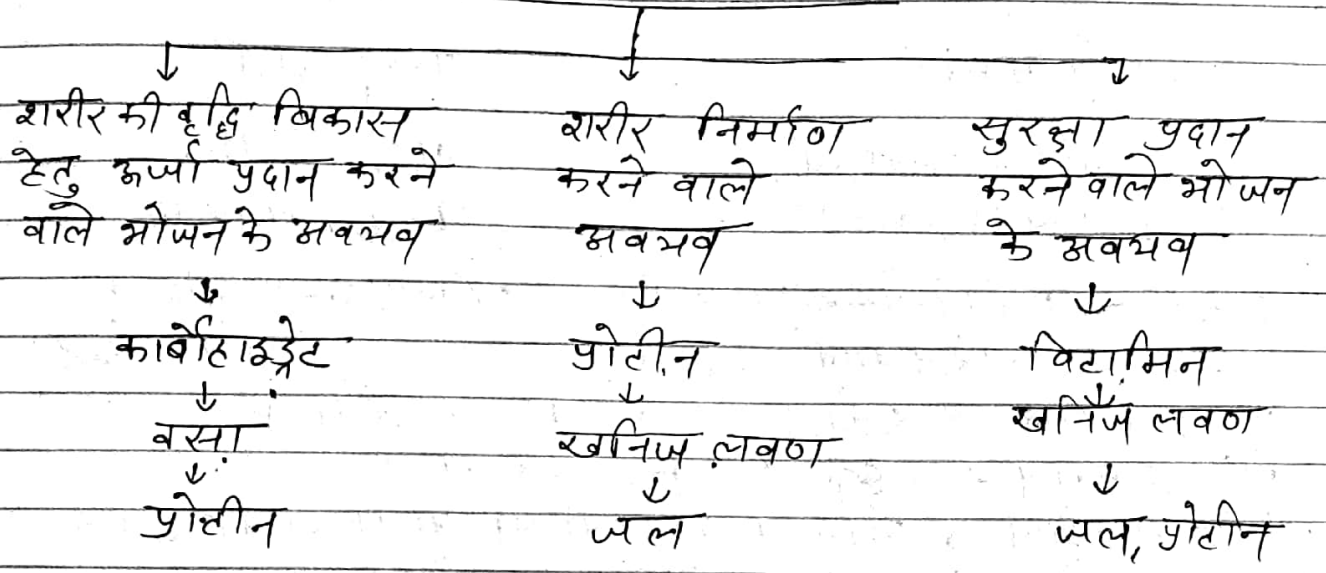 शरीर की वृद्धि विकास
हेतु ऊर्जा प्रदान करने
वाले भोजन के अवयव
↓
कार्बोहाइड्रेट
↓
वसा
↓
प्रोटीन
शरीर निर्माण
करने वाले
अवयव
↓
प्रोटीन
↓
खनिज लवण
↓
जल
सुरक्षा प्रदान
करने वाले भोजन
के अवयव
↓
विटामिन
↓
खनिज लवण
↓
जल, प्रोटीन